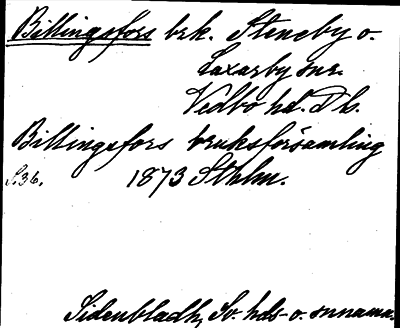 Billingsfors brk. Steneby o.
Laxarby snr.
Vedbo hd. Db.
Billingsfors bruksförsamling
S.36. 1873 Sthlm.
Sidenbladh, Sv. hds- o. snnamn.